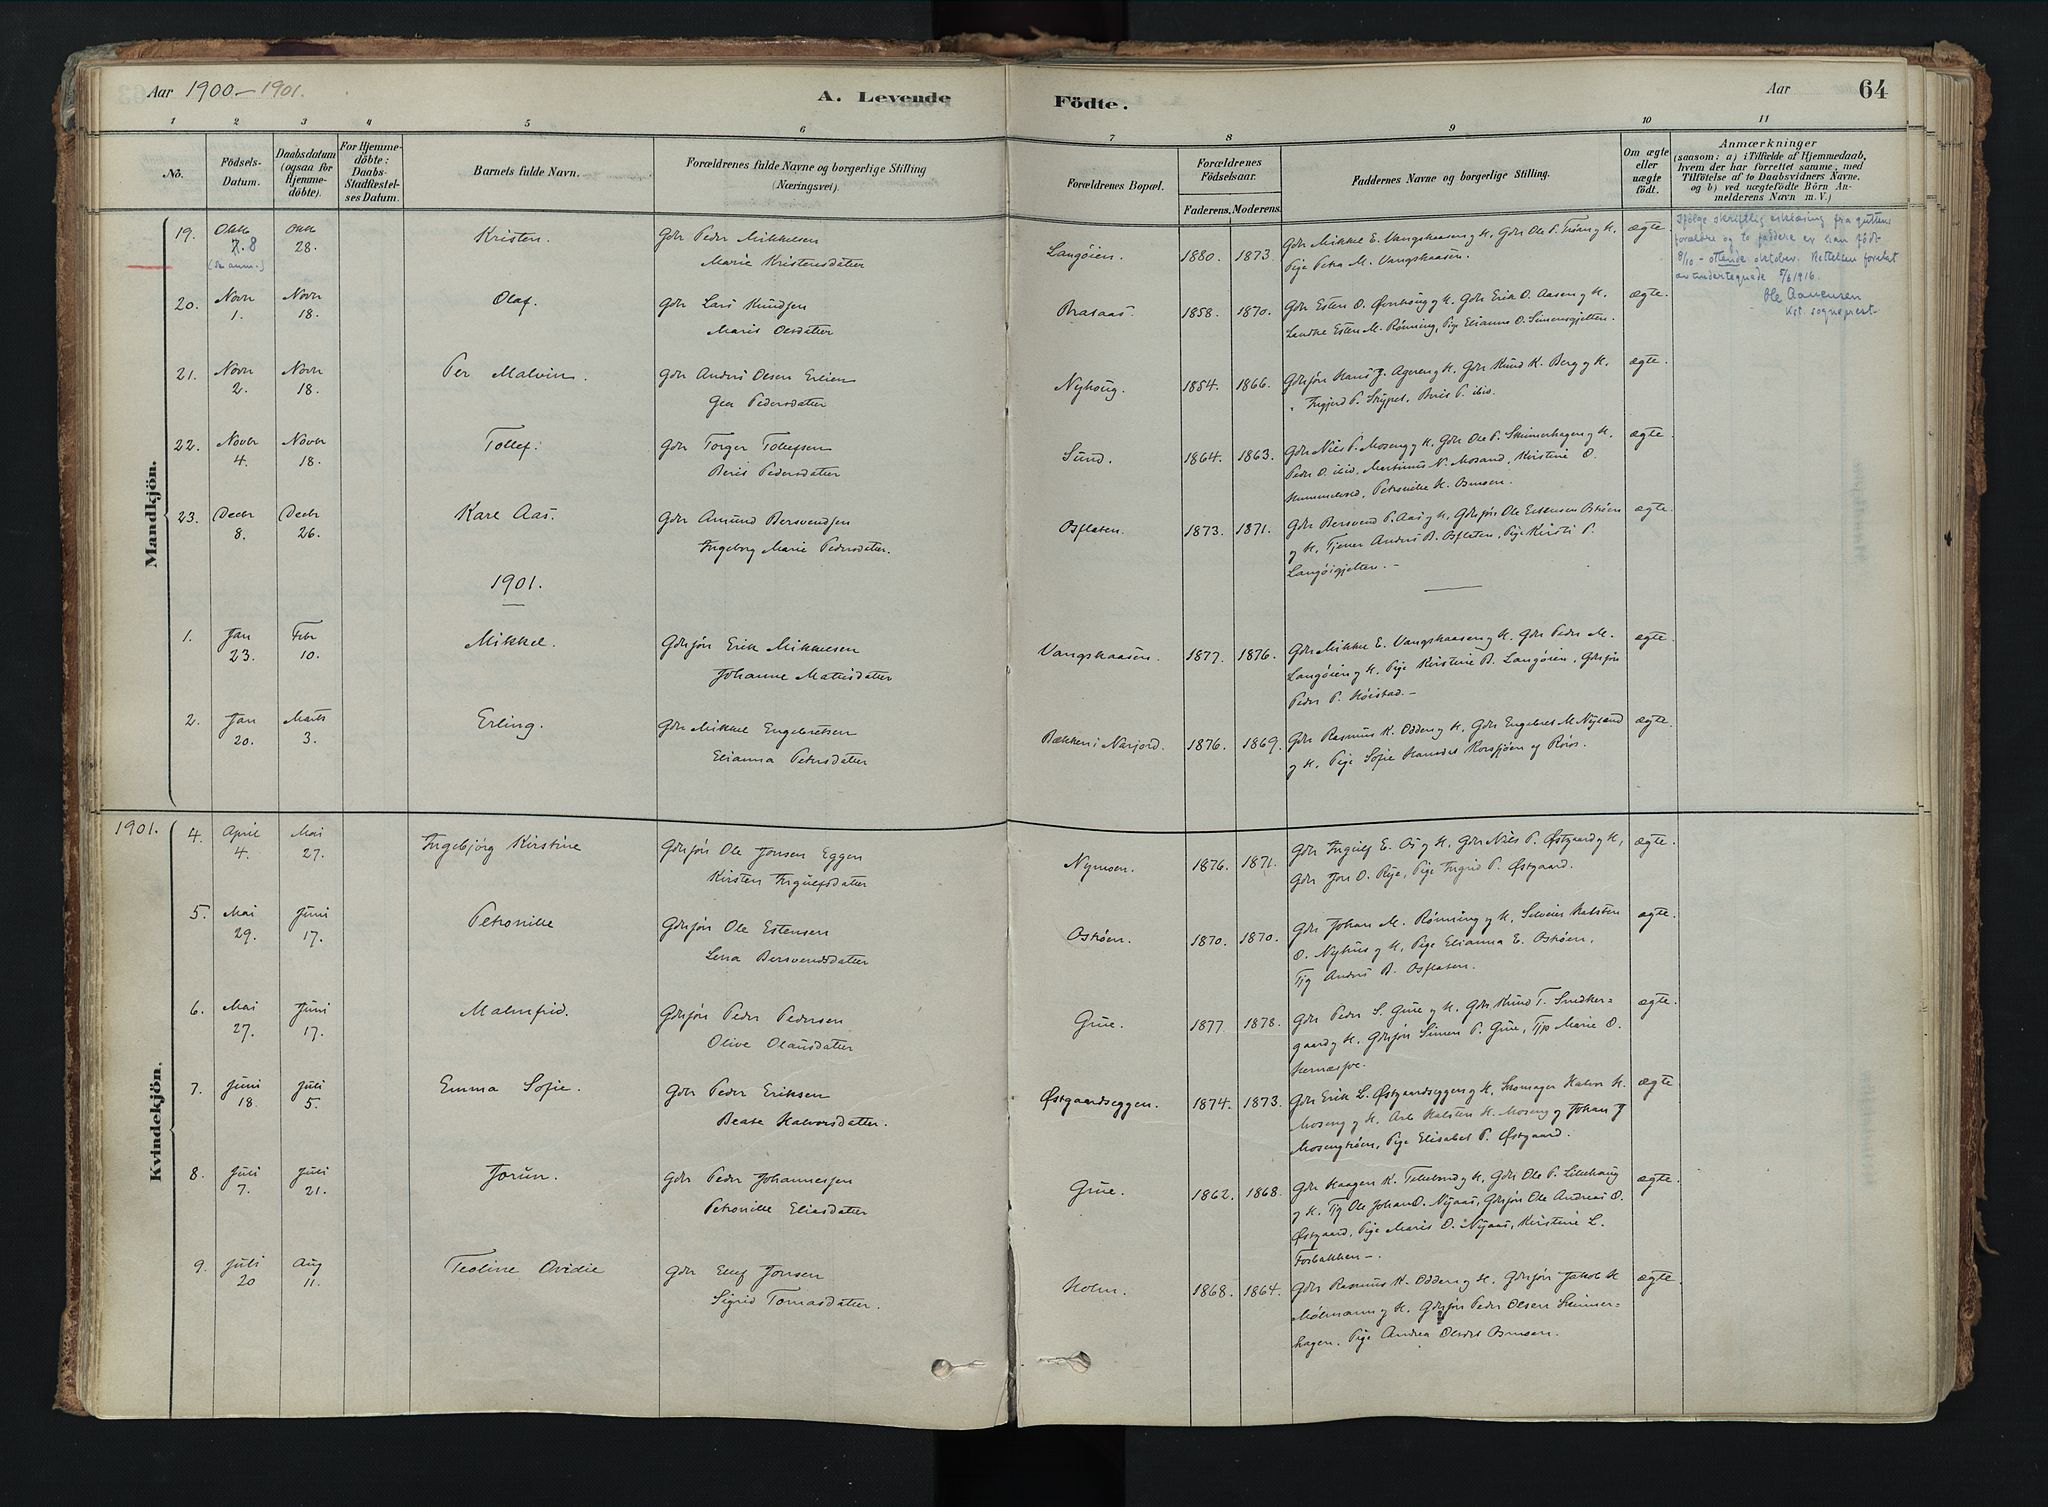 Aar 1900-1901.
A. Levende
Födte.
Aar
64
1 2 3 4 5 6 7 8 9 10 11
No.
Födsels-
Datum.
Daabsdatum
(ogsaa for
Hjemme-
döbte).
For Hjemme-
döbte:
Daabs-
Stadfæstel-
ses Datum.
Barnets fulde Navn.
Forældrenes fulde Navne og borgerlige Stilling
(Næringsvei).
Forældrenes Bopæl.
Forældrenes
Födselsaar.
Faderens. Moderens.
Faddernes Navne og borgerlige Stilling.
Om ægte
eller
uægte
födt.
Anmærkninger
(saasom: a) i Tilfælde af Hjemmedaab,
hvem der har forrettet samme, med
Tilföielse af to Daabsvidners Navne,
og b) ved uægtefödte Börn An-
melderens Navn m. V.)
Mandkjön.
19. Oktb 7. 8 (se anm.) Oktb 28. Kristen. Gdr Peder Mikkelsen
Marie Kristensdatter
Langøien. 1880. 1873. Gdr Mikkel E. Vangskaasen og K, Gdr Ole P. Trøan og K,
Pige Petra M. Vangskaasen. ægte.
Ifølge skriftlig erklæring fra guttens
forældre og to faddere er han født
8/10 - ottende oktober. Rettelsen foretat
av undertegnede 5/6 1916.
Ole Aanensen
kst. sogneprest
20. Novbr 1. Novbr 18. Olaf. Gdr Lars Knudsen
Maris Olsdatter
Brasaas. 1858. 1870. Gdr Esten O. Ørnhoug og K, Gdr Erik O. Aasen og K,
Landhr Esten M. Rønning, Pige Elianne O. Simensgjelten. ægte.
21. Novbr 2. Novbr 18. Per Malvin. Gdr Anders Olsen Erlien
Gea Pedersdatter
Nyhoug. 1854. 1866. Gdrsøn Hans J. Ageren og K, Gdr Knud K. Berg og K,
" Ingjerd P. Stypet, Beris P. ibid. ægte.
22. Novbr 4. Novbr 18. Tollef. Gdr Torger Tollefsen
Beris Pedersdatter
Sund. 1864. 1863. Gdr Niels P. Moseng og K, Gdr Ole P. Skinnerhagen og K,
Peder O. ibid, Martinus N. Mosand, Kirstine O.
Hummelvold, Petronille H. Osmoen. ægte.
23. Decbr 8. Decbr 26. Kare Aas. Gdr Amund Bersvendsen
Ingeborg Marie Pedersdatter.
Osflaten. 1873. 1871. Gdr Bersvend P. Aas og K, Gdrsøn Ole Estensen Ostrøen
og K, Tjener Anders B. Osflaten, Pige Kirsti P.
Langøigjelten. - ægte.
1901.
1. Jan 23. Febr 10. Mikkel. Gdrsøn Erik Mikkelsen
Johanne Matisdatter
Vangskaasen. 1877. 1876. Gdr Mikkel E. Vangskaasen og K, Gdr Peder M.
Langøien og K, Pige Kirstine B. Langøien, Gdrsøn
Peder P. Høistad. - ægte.
2. Jan 20. Marts 3. Erling. Gdr Mikkel Engebretsen
Elianna Petersdatter
Bækken i Narjord. 1876. 1869. Gdr Rasmus K. Odden og K, Gdr Engebret M. Nyland
og K, Pige Sofie Hansdtr Korssjøen af Røros. ægte.
Kvindekjön.
1901. 4. April 4. Mai 27. Ingebjørg Kirstine Gdrsøn Ole Jonsen Eggen
Kirsten Ingulfsdatter
Nymoen. 1876. 1871. Gdr Ingulf E. Os og K, Gdr Niels P. Østgaard og K,
Gdr Jon O. Rye, Pige Ingrid P. Østgaard. ægte.
5. Mai 29. Juni 17. Petronille Gdrsøn Ole Estensen
Lena Bersvendsdatter
Ostrøen. 1870. 1870. Gdr Johan M. Rønning og K, Selveier Halsten
O. Nyhus og K, Pige Elianna E. Ostrøen,
Tjg Anders B. Osflaten. ægte.
6. Mai 27. Juni 17. Malmfrid. Gdrsøn Peder Pedersen
Olive Olausdatter
Grue. 1877. 1878. Gdr Peder S. Grue og K, Gdr Knud T. Smedker-
gaard og K, Gdrsøn Simen P. Grue, Tjp Marie O.
Kernæsjve. ægte.
7. Juni 18. Juli 5. Emma Sofie. Gdr Peder Eriksen
Beate Halvorsdatter.
Østgaardseggen. 1874. 1873. Gdr Erik L. Østgaardseggen og K, Skomager Halvor H.
Moseng og K, Arb Halsten H. Moseng og Johan J
Mosengtrøen, Pige Elisabet P. Østgaard. ægte.
8. Juli 7. Juli 21. Jorun. Gdr Peder Johannessen
Petronille Eliasdatter
Grue. 1862. 1868. Gdr Haagen K. Tellebond og K, Gdr Ole P. Lillehaug
og K, Tjg Ole Johan O. Nyaas, Gdrsøn Ole Andreas O.
Østgaard, Pige Maris O. Nyaas, Kirstine L.
Forbakken -. ægte.
9. Juli 20 Aug 11. Teoline Ovidie Gdr Ellef Jonsen
Sigrid Tomasdatter.
Holm. 1868. 1864. Gdr Rasmus K. Odden og K, Gdrsøn Jakob H
Mølmann og K, Gdrsøn Peder Olsen Skinner-
hagen, Pige Andrea Olsdtr Osmoen. ægte.